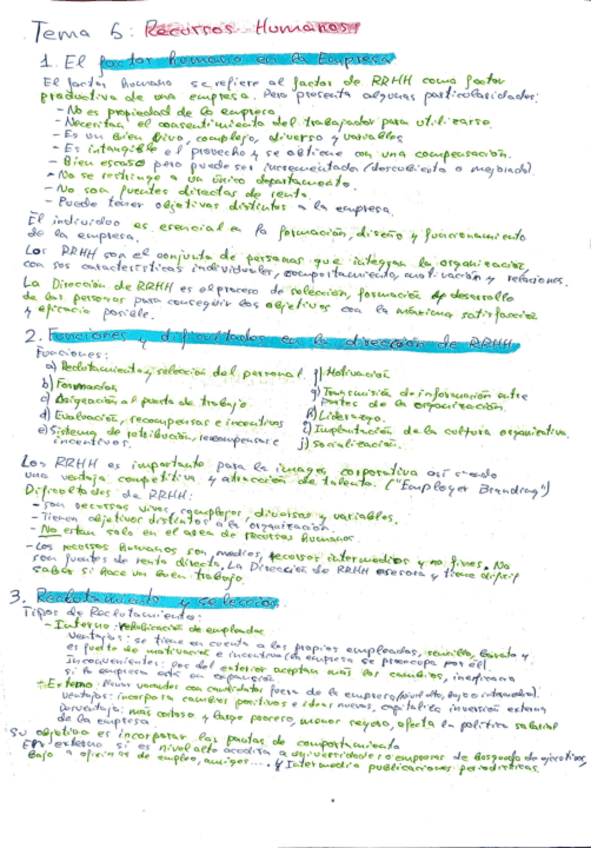 Tema 5: Recursos Humanos
1. El factor humano en la Empresa
El factor humano se refiere al factor de RRHH como factor
productivo de una empresa. Pero presenta algunas particularidades:
- No es propiedad de la empresa.
- Necesitan el consentimiento del trabajador para utilizarse.
- Es un Bien vivo, complejo, diverso y variables
- Es intangible el provecho y se obtiene con una compensación.
- Bien escaso pero puede ser incrementado (descubierto o mejorado).
- No se restringe a un único departamento.
- No son fuentes directas de renta.
- Puede tener objetivos distintos a la empresa.
El individuo es esencial en la formación, diseño y funcionamiento
de la empresa.
Los RRHH son el conjunto de personas que integran la organización,
con sus características individuales, comportamiento, motivación y relaciones.
La Dirección de RRHH es el proceso de selección, formación y desarrollo
de las personas para conseguir los objetivos con la máxima satisfacción
y eficacia posible.
2. Funciones y dificultades en la dirección de RRHH
Funciones:
a) Reclutamiento y selección del personal.
b) Formación
c) Asignación al puesto de trabajo
d) Evaluación, recompensas e incentivos
e) Sistema de retribución, recompensas e
incentivos.
f) Motivación
g) Transmisión de información entre
partes de la organización.
h) Liderazgo.
i) Implantación de la cultura organizativa.
j) Socialización.
Los RRHH es importante para la imagen corporativa así siendo
una ventaja competitiva y atracción de talento. ("Employer Branding")
Dificultades de RRHH:
- Son recursos vivos, complejos, diversos y variables.
- Tienen objetivos distintos a la organización.
- No estan solo en el area de recursos humanos.
- Los recursos humanos son medios, recursos intermedios y no fines. No
son fuentes de renta directa. La Dirección de RRHH asesora y tiene dificil
saber si hace un buen trabajo.
3. Reclutamiento y selección
Tipos de Reclutamiento:
- Interno: reubicación de empleados
Ventajas: se tiene en cuenta a los propios empleados, sencillo, barato y
es fuente de motivación e incentivo (la empresa se preocupa por él).
Inconvenientes: los del exterior aceptan más los cambios, ineficaz
si la empresa está en expansión
- Externo: vacantes con candidatos fuera de la empresa (nivel alto, bajo o intermedio).
Ventajas: incorpora cambios positivos e ideas nuevas, capitaliza inversión externa
Desventaja: más costoso y largo proceso, menor seguro, afecta la política salarial
de la empresa
Su objetivo es incorporar las pautas de comportamiento
En externo si es nivel alto acudirá a universidades o empresas de Busqueda de ejecutivos,
Bajo a oficinas de empleo, amigos.... y Intermedio publicaciones periodísticas.